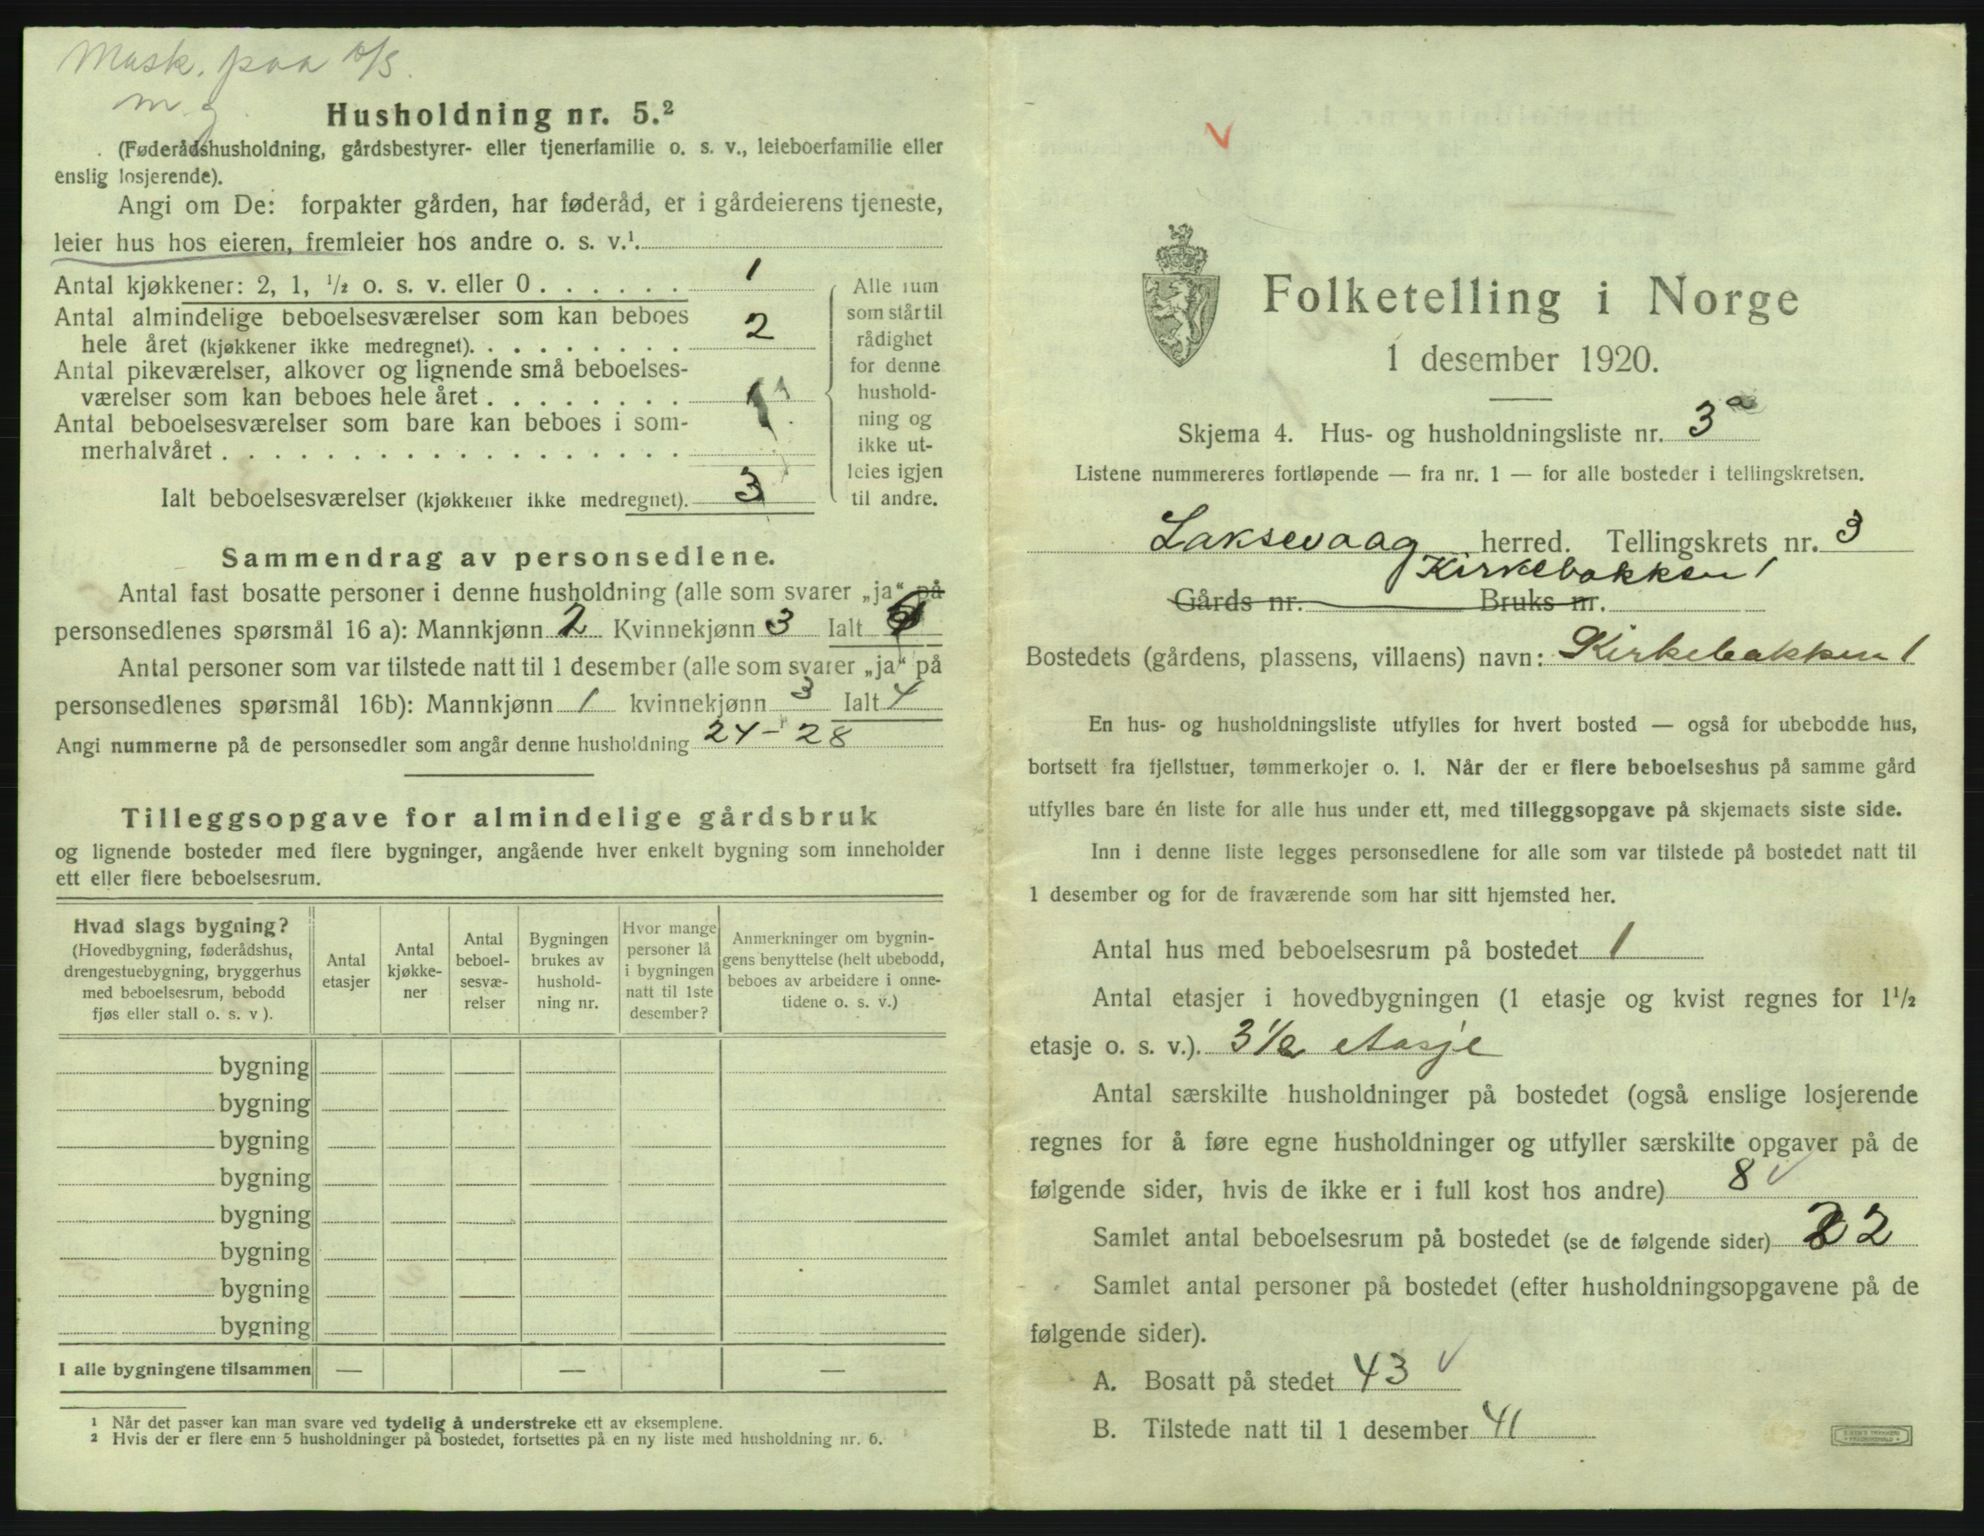 Mask. paa 10/8.
m g
Husholdning nr. 5.²
(Føderådshusholdning, gårdsbestyrer- eller tjenerfamilie o. s. v., leieboerfamilie eller
enslig losjerende).
Angi om De: forpakter gården, har føderåd, er i gårdeierens tjeneste,
leier hus hos eieren, fremleier hos andre o. s. v.¹
Antal kjøkkener: 2, 1, ½ o. s. v. eller 0 . . . . . . 1
Antal almindelige beboelsesværelser som kan beboes
hele året (kjøkkener ikke medregnet). . . . . . . . . 2
Antal pikeværelser, alkover og lignende små beboelses-
værelser som kan beboes hele året . . . . . . . . 1
Antal beboelsesværelser som bare kan beboes i som-
merhalvåret . . . . . . . . . . . . . . . . . .
Ialt beboelsesværelser (kjøkkener ikke medregnet). 3
Alle rum
som står til
rådighet
for denne
hushold-
ning og
ikke ut-
leies igjen
til andre.
Sammendrag av personsedlene.
Antal fast bosatte personer i denne husholdning (alle som svarer „ja“ på
personsedlenes spørsmål 16 a): Mannkjønn 2 Kvinnekjønn 3 Ialt
Antal personer som var tilstede natt til 1 desember (alle som svarer „ja“ på
personsedlenes spørsmål 16b): Mannkjønn 1 kvinnekjønn 3 Ialt 4
Angi nummerne på de personsedler som angår denne husholdning 24-28
Tilleggsopgave for almindelige gårdsbruk
og lignende bosteder med flere bygninger, angående hver enkelt bygning som inneholder
ett eller flere beboelsesrum.
Hvad slags bygning?
(Hovedbygning, føderådshus,
drengestuebygning, bryggerhus
med beboelsesrum, bebodd
fjøs eller stall o. s. v ).
Antal
etasjer
Antal
kjøkke-
ner
Antal
beboel-
sesvæ-
relser
Bygningen
brukes av
hushold-
ning nr.
Hvor mange
personer lå
i bygningen
natt til 1ste
desember?
Anmerkninger om bygnin-
gens benyttelse (helt ubebodd,
beboes av arbeidere i onne-
tidene o. s. v.)
bygning
bygning
bygning
bygning
bygning
bygning
bygning
bygning
I alle bygningene tilsammen — — —
¹ Når det passer kan man svare ved tydelig å understreke ett av eksemplene.
² Hvis der er flere enn 5 husholdninger på bostedet, fortsettes på en ny liste med husholdning nr. 6.
V
Folketelling i Norge
1 desember 1920.
Skjema 4. Hus- og husholdningsliste nr. 3 a
Listene nummereres fortløpende — fra nr. 1 — for alle bosteder i tellingskretsen.
Laksevaag herred. Tellingskrets nr. 3
Kirkebakken 1
Gårds nr. Bruks nr.
Bostedets (gårdens, plassens, villaens) navn: Kirkebakken 1
En hus- og husholdningsliste utfylles for hvert bosted — også for ubebodde hus,
bortsett fra fjellstuer, tømmerkojer o. l. Når der er flere beboelseshus på samme gård
utfylles bare én liste for alle hus under ett, med tilleggsopgave på skjemaets siste side.
Inn i denne liste legges personsedlene for alle som var tilstede på bostedet natt til
1 desember og for de fraværende som har sitt hjemsted her.
Antal hus med beboelsesrum på bostedet 1
Antal etasjer i hovedbygningen (1 etasje og kvist regnes for 1½
etasje o. s. v.). 3 ½ etasje
Antal særskilte husholdninger på bostedet (også enslige losjerende
regnes for å føre egne husholdninger og utfyller særskilte opgaver på de
følgende sider, hvis de ikke er i full kost hos andre) 8 √
Samlet antal beboelsesrum på bostedet (se de følgende sider) 22
Samlet antal personer på bostedet (efter husholdningsopgavene på de
følgende sider).
A. Bosatt på stedet 43 √
B. Tilstede natt til 1 desember 41